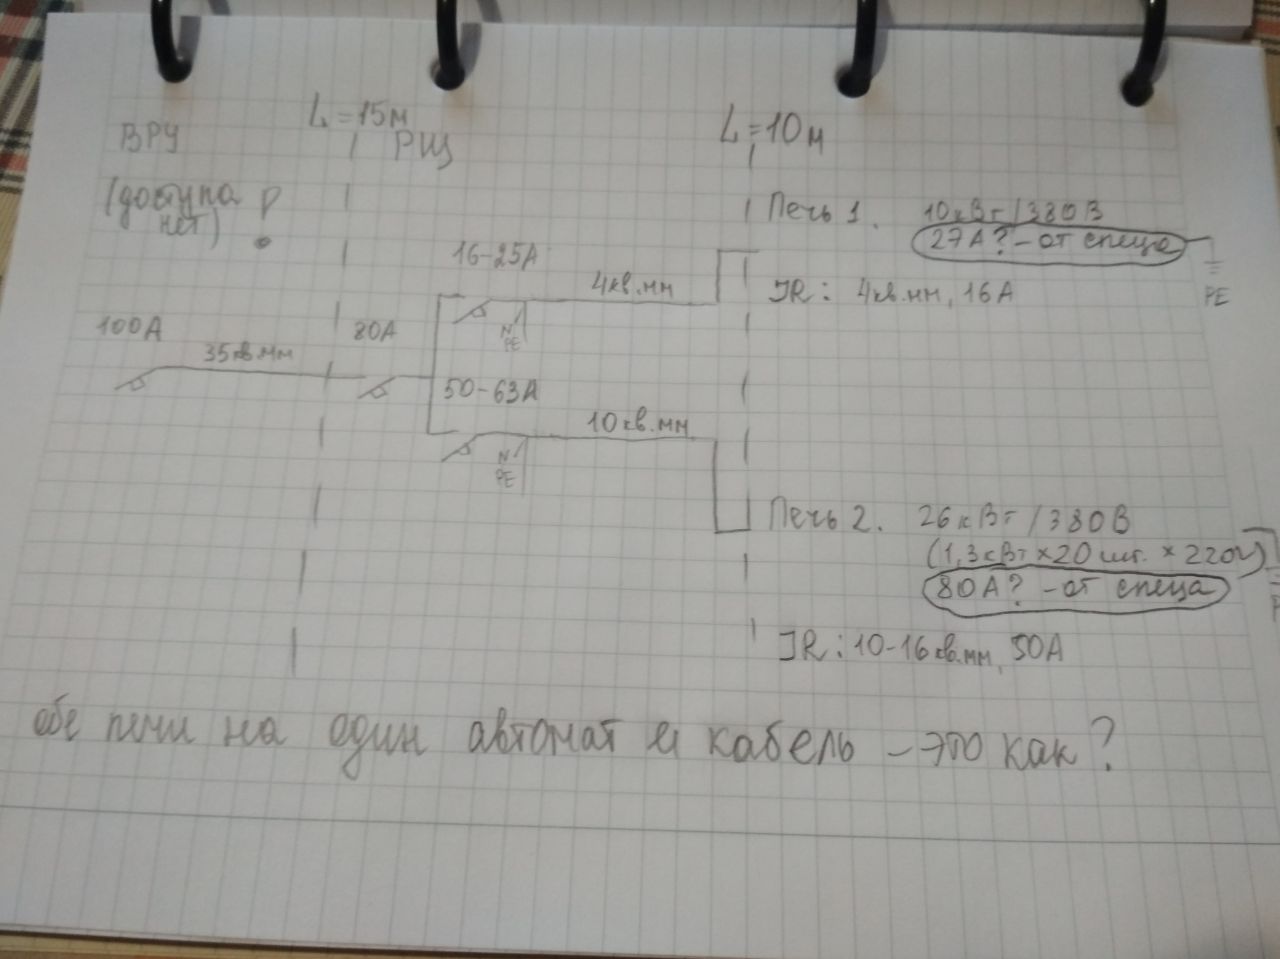 L=15м
L=10м
ВРУ
РЩ
(доступа
нет)
Печь 1. 10кВт/380В
27А? - от спеца
16-25А
4кв.мм
JR: 4кв.мм, 16А
PE
N
PE
100А
80А
35кв.мм
50-63А
10кв.мм
N
PE
Печь 2. 26кВт/380В
(1,3кВт×20шт.×220V)
80А? - от спеца
JR: 10-16кв.мм, 50А
обе печи на один автомат и кабель - это как?